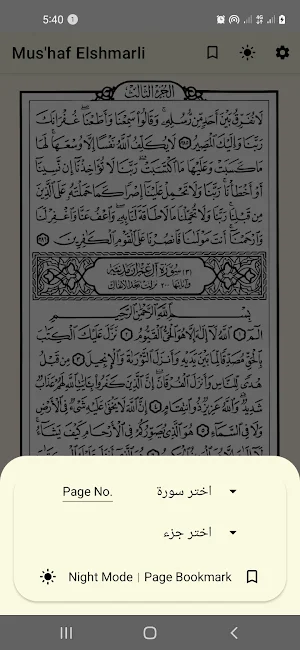 5:40
Mus'haf Elshmarli
الجزء الثالث
لَا نُفَرِّقُ بَيْنَ أَحَدٍ مِّن رُّسُلِهِ وَقَالُوا سَمِعْنَا وَأَطَعْنَا غُفْرَانَكَ
رَبَّنَا وَإِلَيْكَ الْمَصِيرُ لَا يُكَلِّفُ اللَّهُ نَفْسًا إِلَّا وُسْعَهَا لَهَا
مَا كَسَبَتْ وَعَلَيْهَا مَا اكْتَسَبَتْ رَبَّنَا لَا تُؤَاخِذْنَا إِن نَّسِينَا
أَوْ أَخْطَأْنَا رَبَّنَا وَلَا تَحْمِلْ عَلَيْنَا إِصْرًا كَمَا حَمَلْتَهُ عَلَى الَّذِينَ
مِن قَبْلِنَا رَبَّنَا وَلَا تُحَمِّلْنَا مَا لَا طَاقَةَ لَنَا بِهِ وَاعْفُ عَنَّا وَاغْفِرْ لَنَا
وَارْحَمْنَا أَنتَ مَوْلَانَا فَانصُرْنَا عَلَى الْقَوْمِ الْكَافِرِينَ
(٣) سورة آل عمران مدنية
وآياتها ٢٠٠ نزلت بعد الأنفال
بِسْمِ اللَّهِ الرَّحْمَٰنِ الرَّحِيمِ
الم اللَّهُ لَا إِلَٰهَ إِلَّا هُوَ الْحَيُّ الْقَيُّومُ نَزَّلَ عَلَيْكَ الْكِتَٰبَ
بِالْحَقِّ مُصَدِّقًا لِّمَا بَيْنَ يَدَيْهِ وَأَنزَلَ التَّوْرَىٰةَ وَالْإِنجِيلَ مِن قَبْلُ
هُدًى لِّلنَّاسِ وَأَنزَلَ الْفُرْقَانَ إِنَّ الَّذِينَ كَفَرُوا بِآيَاتِ اللَّهِ لَهُمْ عَذَابٌ
شَدِيدٌ وَاللَّهُ عَزِيزٌ ذُو انتِقَامٍ إِنَّ اللَّهَ لَا يَخْفَىٰ عَلَيْهِ شَيْءٌ فِي الْأَرْضِ
وَلَا فِي السَّمَاءِ هُوَ الَّذِي يُصَوِّرُكُمْ فِي الْأَرْحَامِ كَيْفَ يَشَاءُ
Page No. اختر سورة
اختر جزء
Night Mode | Page Bookmark